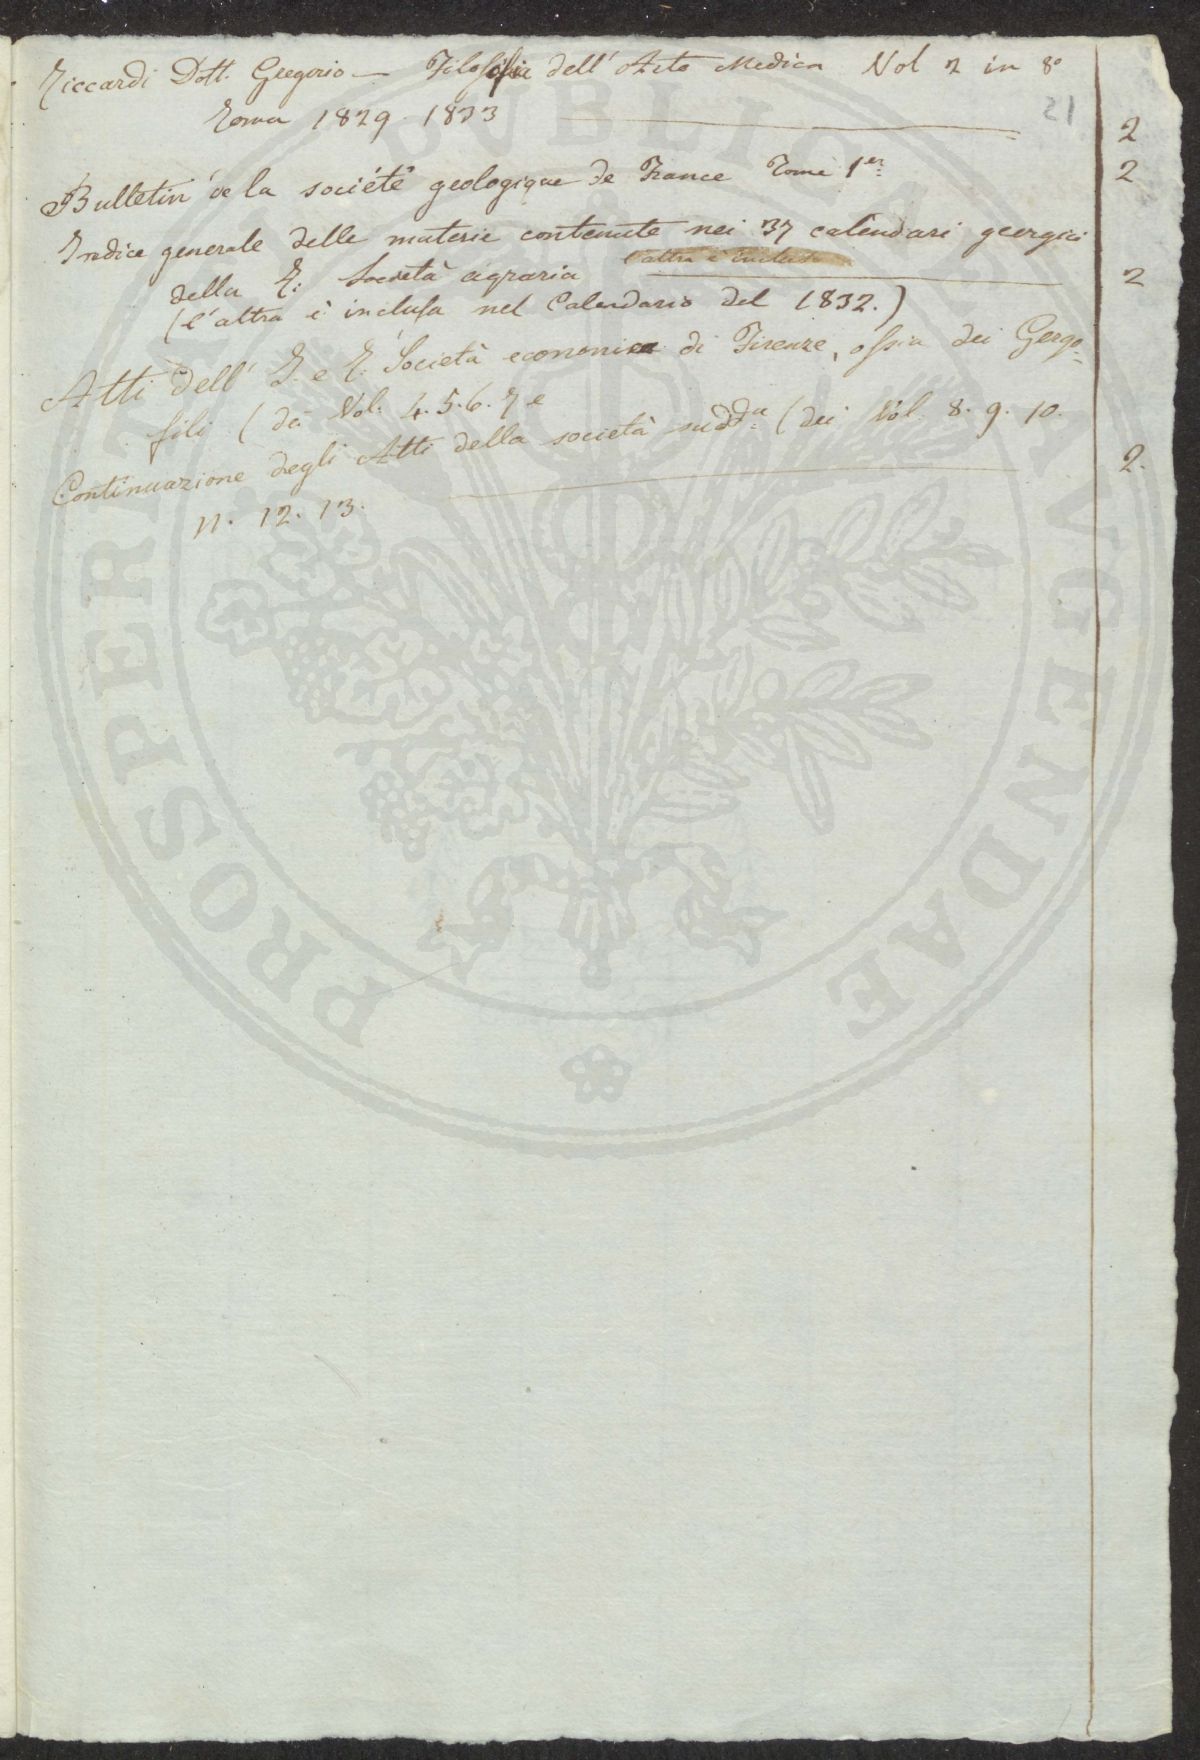 Riccardi Dott. Gregorio — Filosofia dell' Arte Medica Vol 2 in 8°
21
Roma 1829. 1833 2
Bullettin de la société geologique de France Tome 1er 2
Indice generale delle materie contenute nei 37 calendari georgici
della R: Società agraria l'altra è inclusa 2
(l'altra è inclusa nel Calendario del 1832.)
Atti dell' I. e R. Società economica di Firenze, ossia dei Gergo=
fili (da Vol. 4. 5. 6. 7 e
Continuazione degli Atti della società sudda (dei Vol. 8. 9. 10. 2.
11. 12. 13.
PROSPERITATI PUBLICAE AVGENDAE